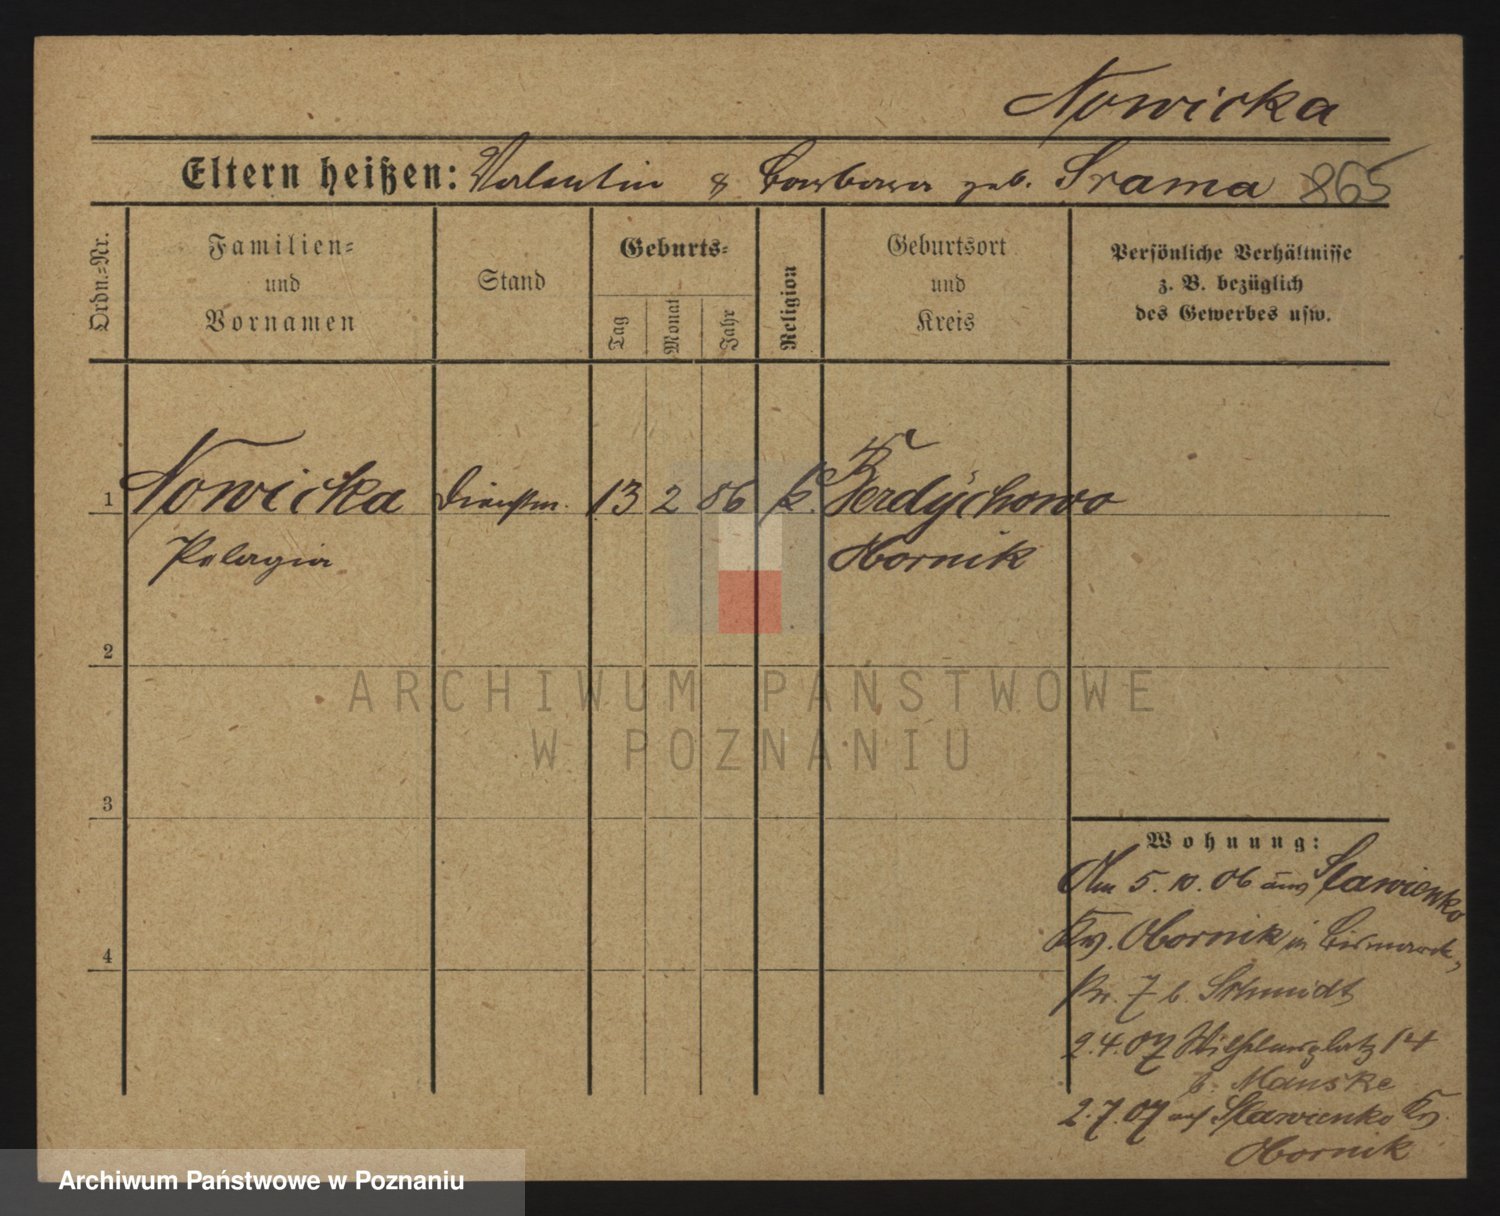 Nowicka
Eltern heißen: Valentin & Barbara geb. Srama 865
Ordn.=Nr.
Familien=
und
Vornamen
Stand
Geburts=
Tag
Monat
Jahr
Religion
Geburtsort
und
Kreis
Persönliche Verhältnisse
z. B. bezüglich
des Gewerbes usw.
1 Nowicka Dienstm. 13 2 86 k. Werdychowo
Pelagia Obornik
2
3
4
Wohnung:
Am 5.10.06 aus Slawienko
Kr. Obornik in Bismarck-
str. 7 b. Schmidt
2.4.07 Wilhelmsplatz 14
b. Manske
2.7.07 auf Slawienko Kr.
Obornik
ARCHIWUM PAŃSTWOWE
W POZNANIU
Archiwum Państwowe w Poznaniu